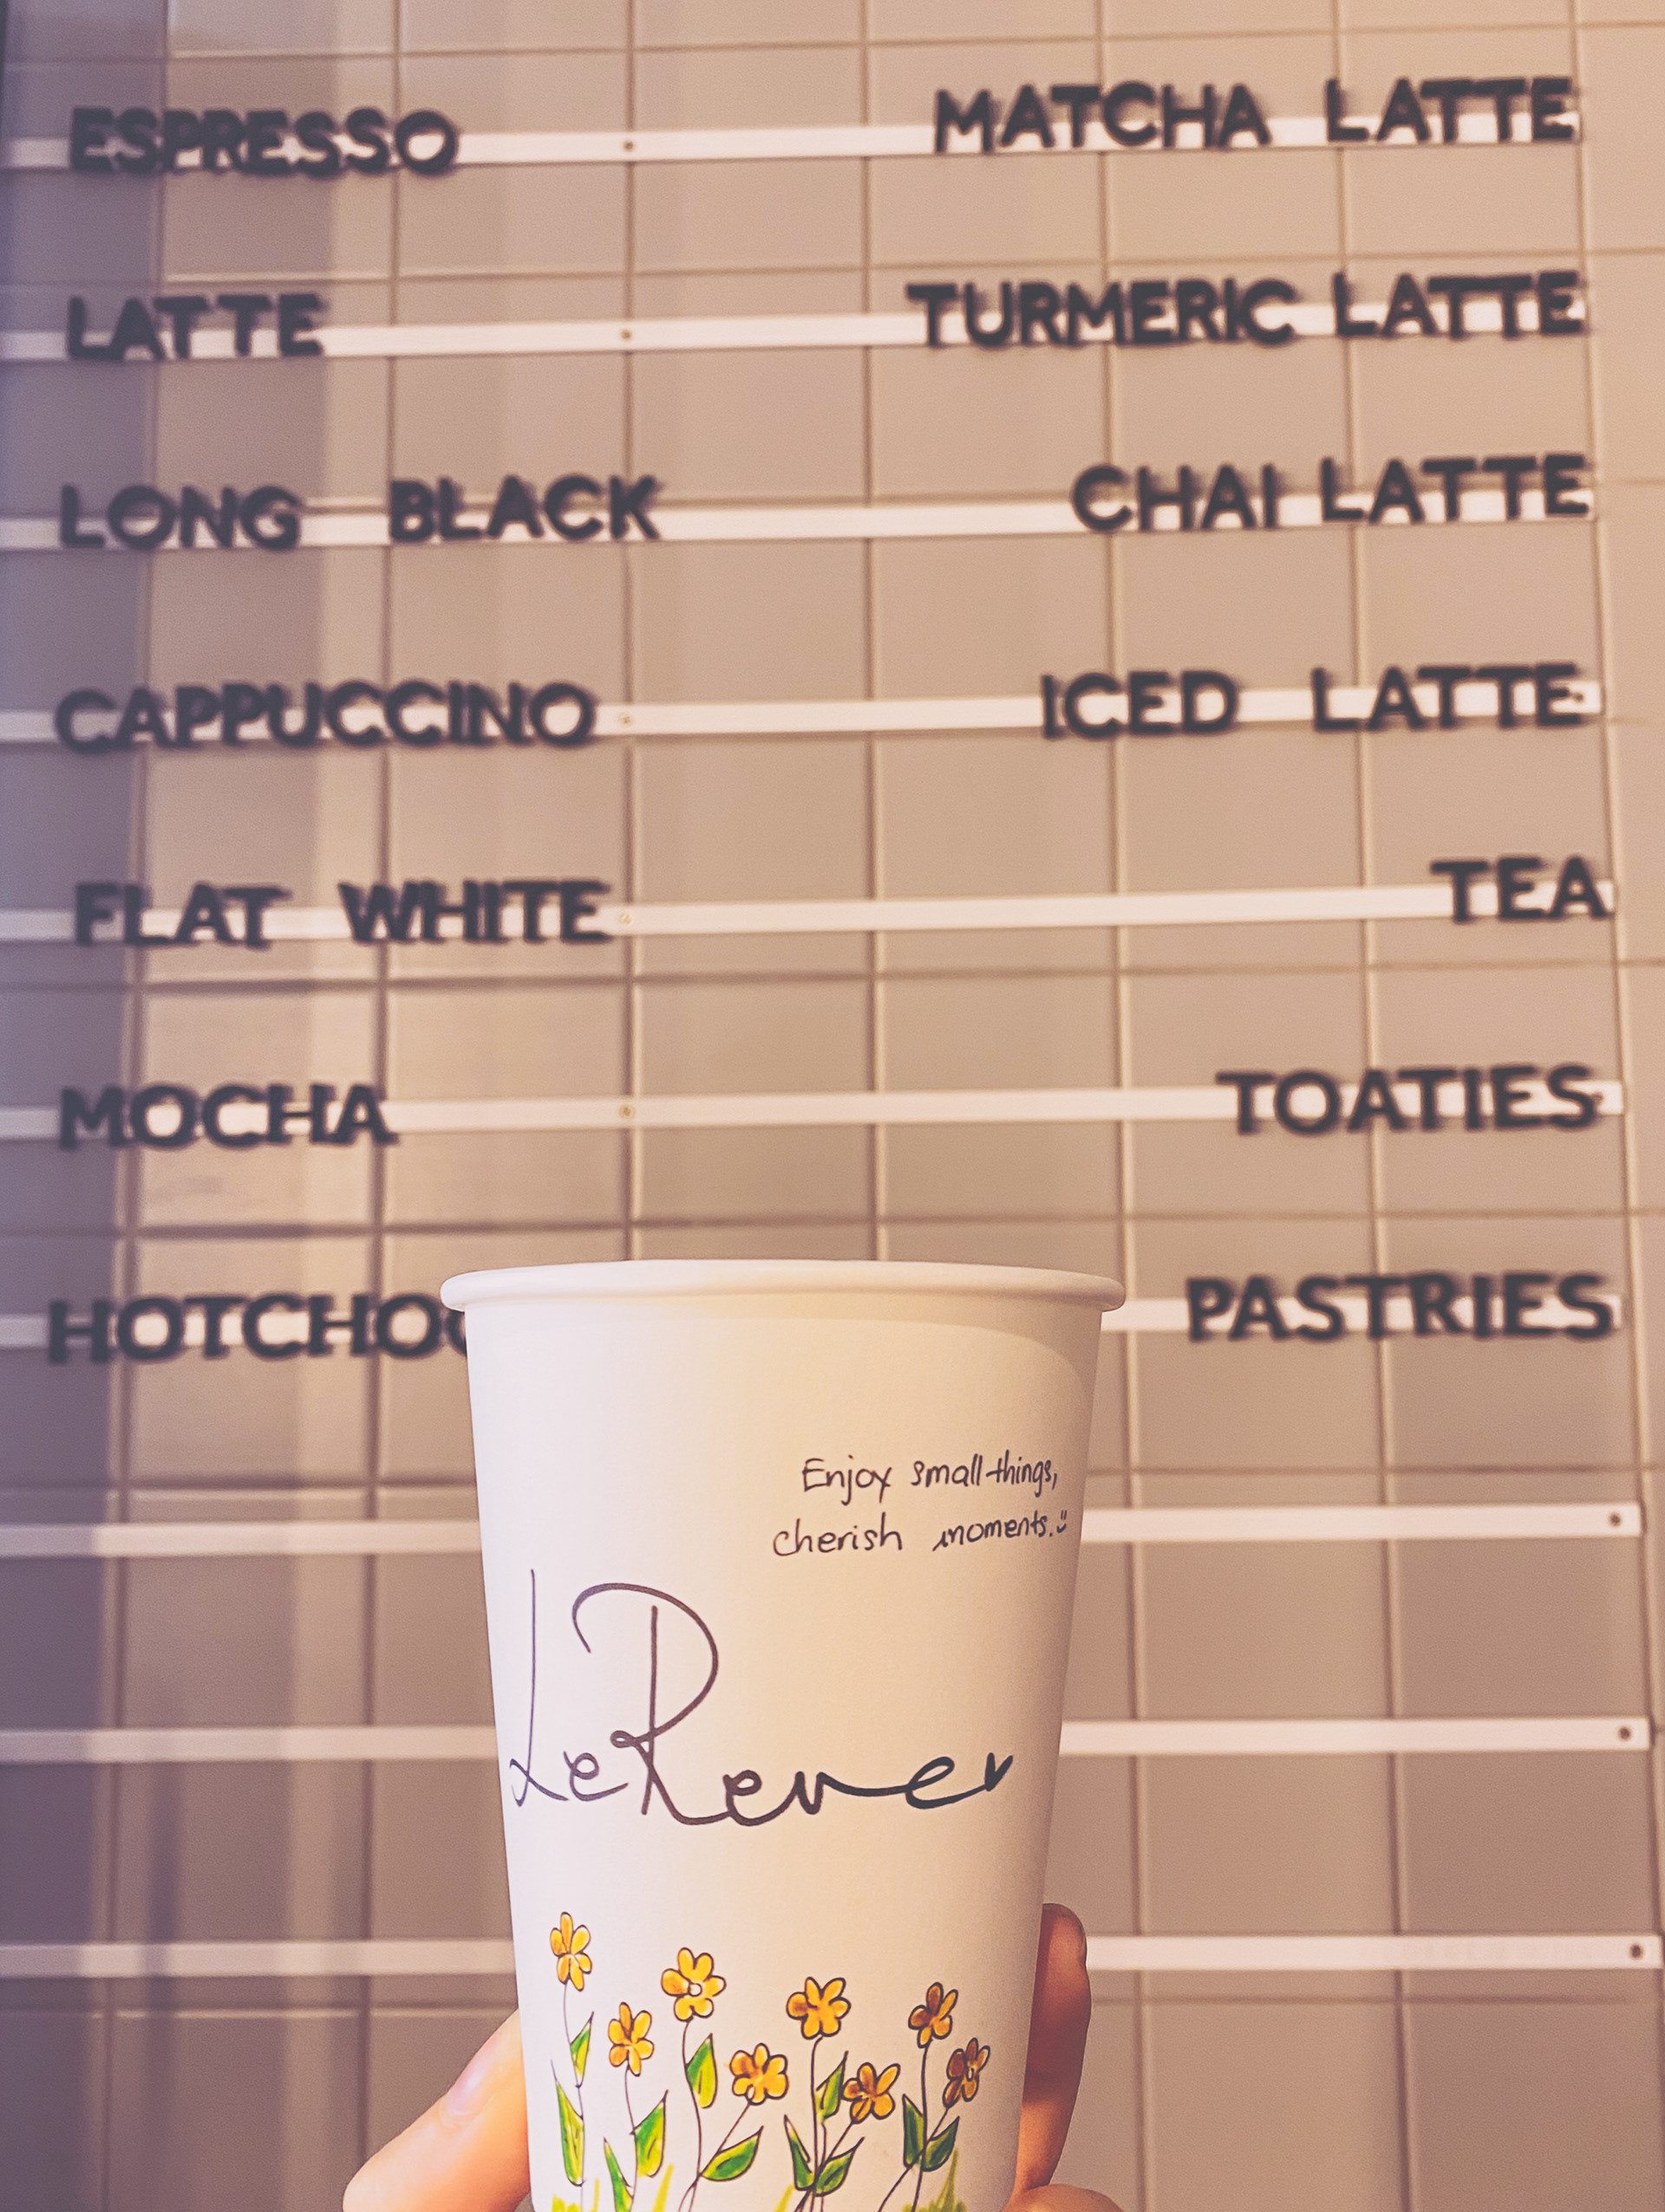 ESPRESSO
LATTE
LONG BLACK
CAPPUCCINO
FLAT WHITE
MOCHA
MATCHA LATTE
TURMERIC LATTE
CHAI LATTE
ICED LATTE
TEA
TOATIES
PASTRIES
Enjoy small things,
cherish moments.